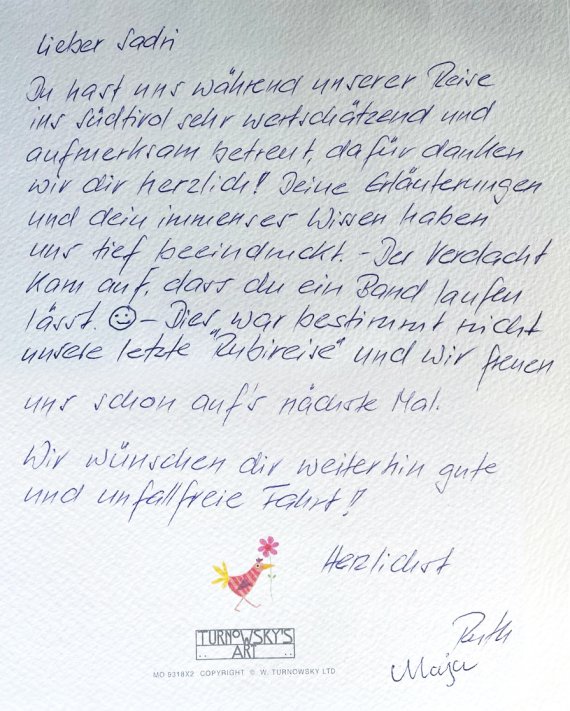 Lieber Sadri
Du hast uns während unserer Reise
ins Südtirol sehr wertschätzend und
aufmerksam betreut, dafür danken
wir dir herzlich! Deine Erläuterungen
und dein immenses Wissen haben
uns tief beeindruckt. – Der Verdacht
kam auf, dass du ein Band laufen
lässt. ☺ – Dies war bestimmt nicht
unsere letzte "Rubireise" und wir freuen
uns schon auf's nächste Mal.
Wir wünschen dir weiterhin gute
und unfallfreie Fahrt!
Herzlichst
Ruth
Maja
TURNOWSKY'S
ART
MO 9318X2 COPYRIGHT © W. TURNOWSKY LTD